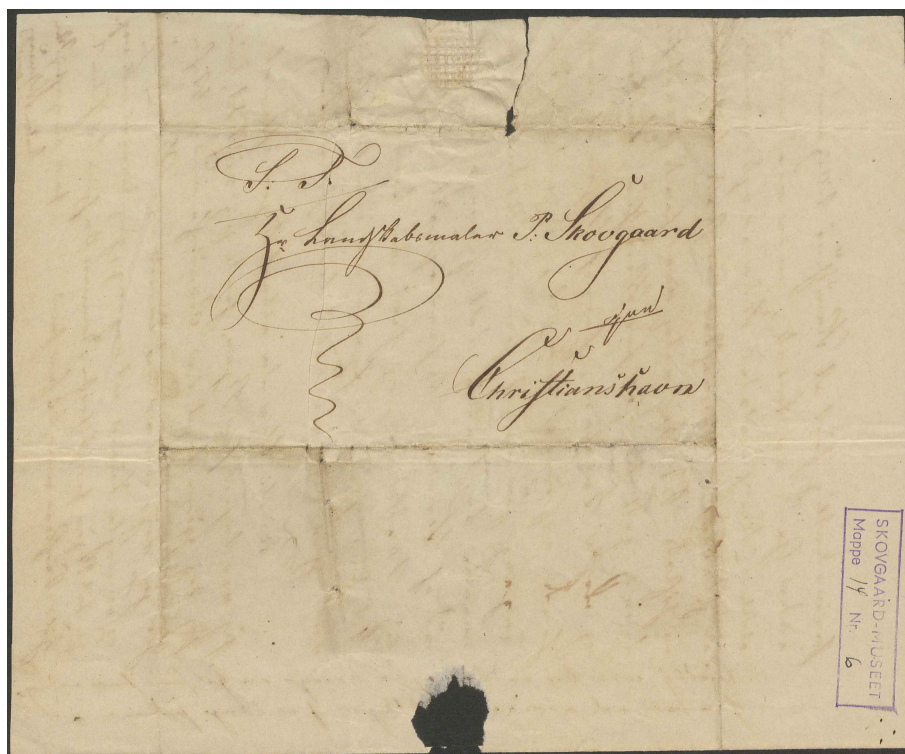 S. T.
Hr Landskabsmaler P. Skovgaard
paa
Christianshavn
SKOVGAARD-MUSEET
Mappe 14 Nr. 6